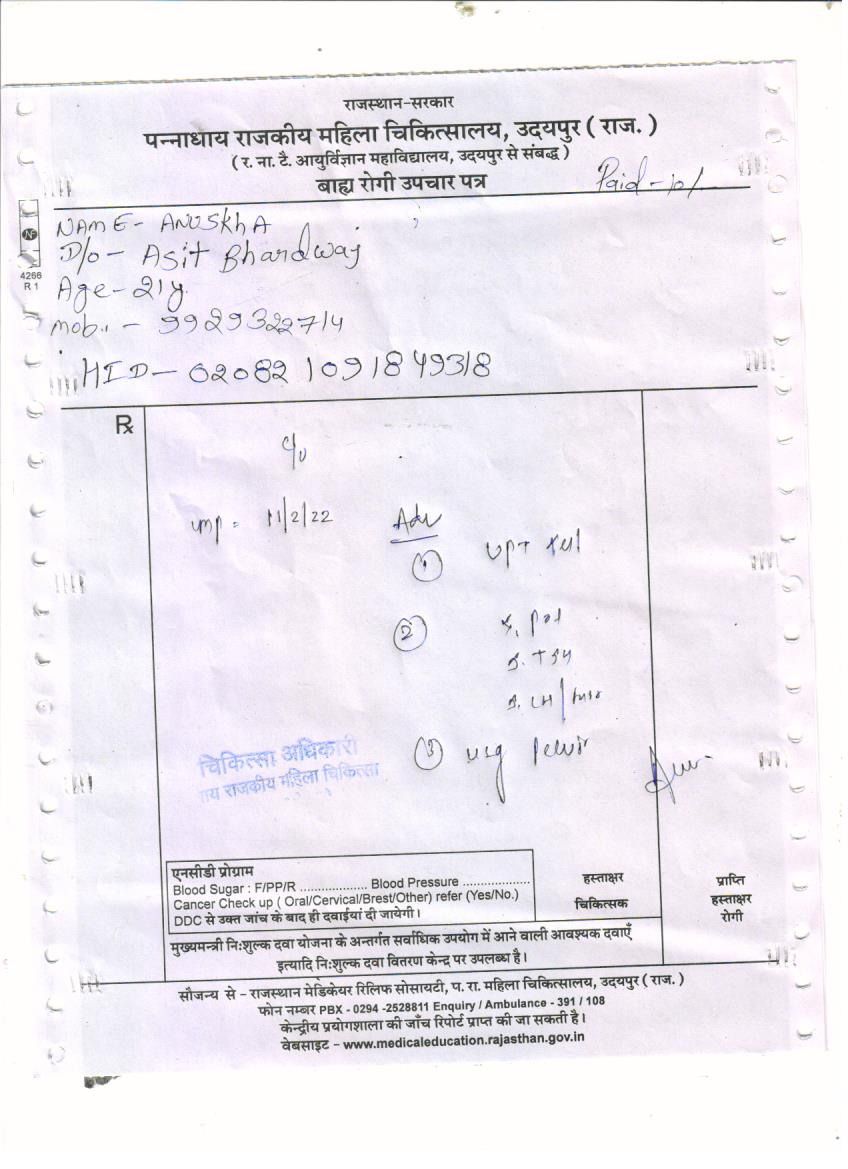 राजस्थान-सरकार
पन्नाधाय राजकीय महिला चिकित्सालय, उदयपुर ( राज. )
( र. ना. टै. आयुर्विज्ञान महाविद्यालय, उदयपुर से संबद्ध )
बाह्य रोगी उपचार पत्र
Paid - 10/-
NAME - ANUSKHA
D/o - Asit Bhardwaj
4266
R 1
Age - 21 y
mob.. - 9929322714
HID - 020821091849318
Rx
c/o
LMP = 11/2/22
Adv
1 UPT
2
S. TSH
S. LH /
3 usg pelvis
चिकित्सा अधिकारी
राजकीय महिला चिकित्सा
एनसीडी प्रोग्राम
Blood Sugar : F/PP/R ................... Blood Pressure ..................
Cancer Check up ( Oral/Cervical/Brest/Other) refer (Yes/No.)
DDC से उक्त जांच के बाद ही दवाईयां दी जायेगी।
हस्ताक्षर
चिकित्सक
प्राप्ति
हस्ताक्षर
रोगी
मुख्यमन्त्री निःशुल्क दवा योजना के अन्तर्गत सर्वाधिक उपयोग में आने वाली आवश्यक दवाएँ
इत्यादि निःशुल्क दवा वितरण केन्द्र पर उपलब्ध है।
सौजन्य से – राजस्थान मेडिकेयर रिलिफ सोसायटी, प. रा. महिला चिकित्सालय, उदयपुर ( राज. )
फोन नम्बर PBX - 0294 -2528811 Enquiry / Ambulance - 391 / 108
केन्द्रीय प्रयोगशाला की जाँच रिपोर्ट प्राप्त की जा सकती है।
वेबसाइट – www.medicaleducation.rajasthan.gov.in